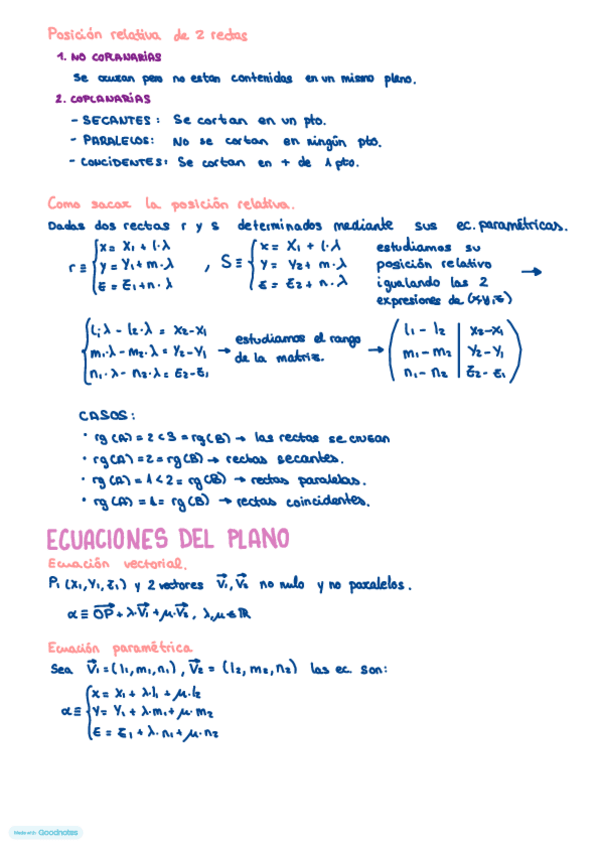 Posición relativa de 2 rectas
1. NO COPLANARIAS
Se cruzan pero no estan contenidas en un mismo plano.
2. COPLANARIAS
- SECANTES: Se cortan en un pto.
- PARALELOS: No se cortan en ningún pto.
- COINCIDENTES: Se cortan en + de 1 pto.
Como sacar la posición relativa.
Dadas dos rectas r y s determinados mediante sus ec. paramétricas.
r ≡ { x = x₁ + l·λ , S ≡ { x = x₁ + l·λ estudiamos su
y = y₁ + m·λ y = y₂ + m·λ posición relativo →
z = z₁ + n·λ z = z₂ + n·λ igualando las 2
expresiones de (x,y,z)
{ l₁λ - l₂·λ = x₂-x₁ ( l₁ - l₂ | x₂-x₁ )
m₁·λ - m₂·λ = y₂-y₁ → estudiamos el rango de la matriz. → m₁ - m₂ | y₂-y₁
n₁·λ - n₂·λ = z₂-z₁ n₁ - n₂ | z₂-z₁
CASOS:
· rg(A) = 2 < 3 = rg(B) → las rectas se cruzan
· rg(A) = 2 = rg(B) → rectas secantes.
· rg(A) = 1 < 2 = rg(B) → rectas paralelas.
· rg(A) = 1 = rg(B) → rectas coincidentes.
ECUACIONES DEL PLANO
Ecuación vectorial.
P₁ (x₁, y₁, z₁) y 2 vectores v⃗₁, v⃗₂ no nulo y no paralelos.
α ≡ OP⃗ + λ·v⃗₁ + μ·v⃗₂, λ, μ ∈ ℝ
Ecuación paramétrica
Sea v⃗₁ = (l₁, m₁, n₁), v⃗₂ = (l₂, m₂, n₂) las ec. son:
α ≡ { x = x₁ + λ·l₁ + μ·l₂
y = y₁ + λ·m₁ + μ·m₂
z = z₁ + λ·n₁ + μ·n₂
Made with Goodnotes